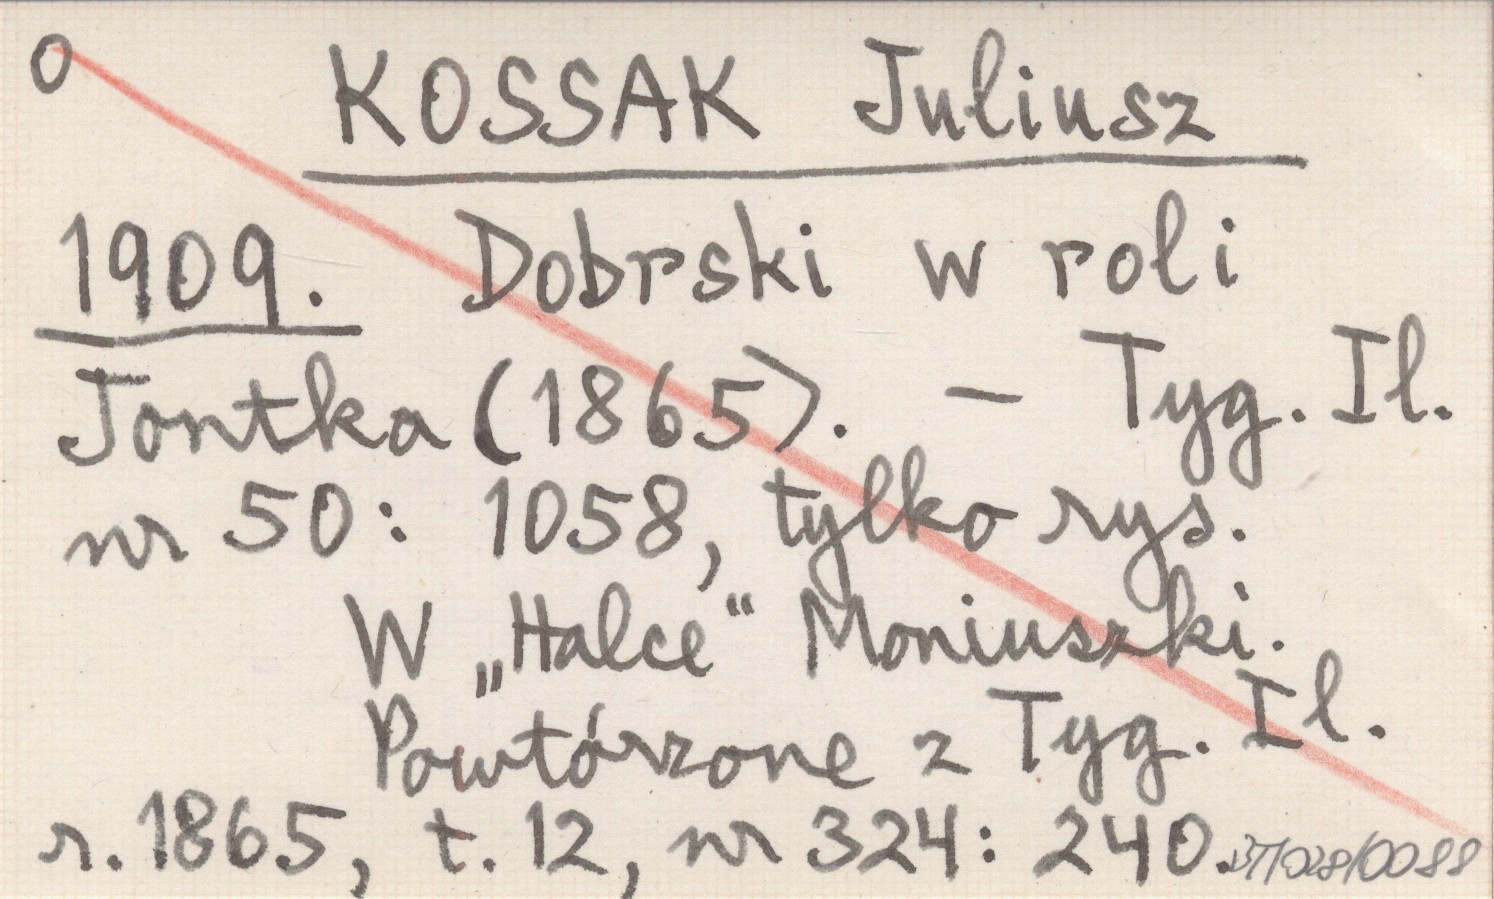 0 KOSSAK Juliusz
1909. Dobrski w roli
Jontka (1865). — Tyg. Il.
nr 50: 1058, tylko rys.
W „Halce” Moniuszki.
Powtórzone z Tyg. Il.
r. 1865, t. 12, nr 324: 240.